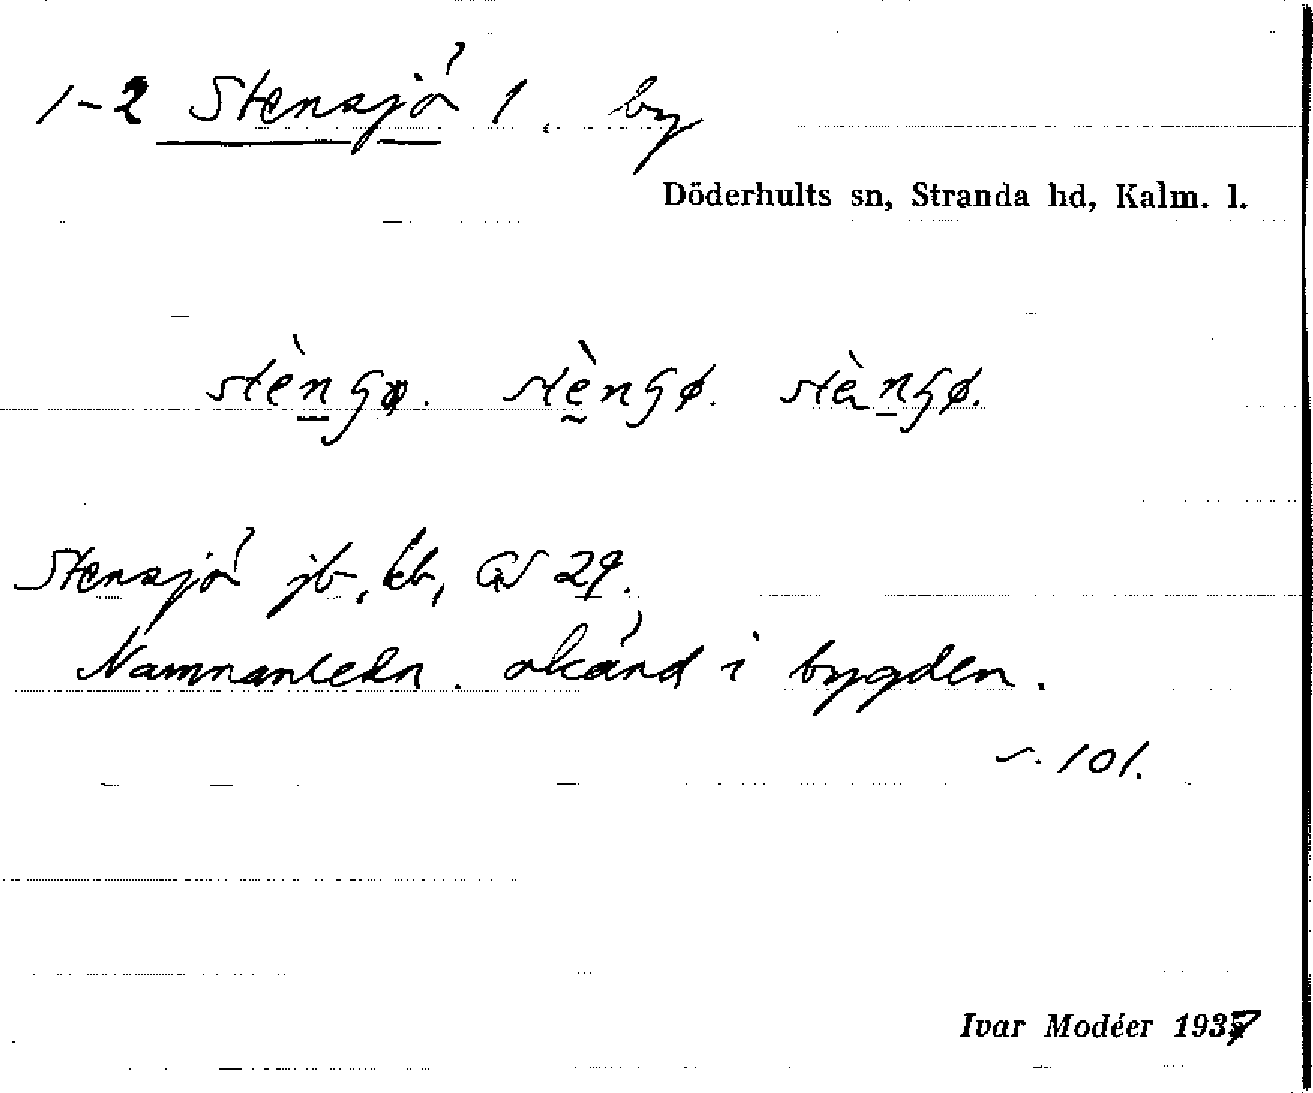 1-2 Stensjö 1. by
Döderhults sn, Stranda hd, Kalm. l.
Stensjö jb, kb, GS 29.
Namnanledn. okänd i bygden.
s. 101.
Ivar Modéer 1937